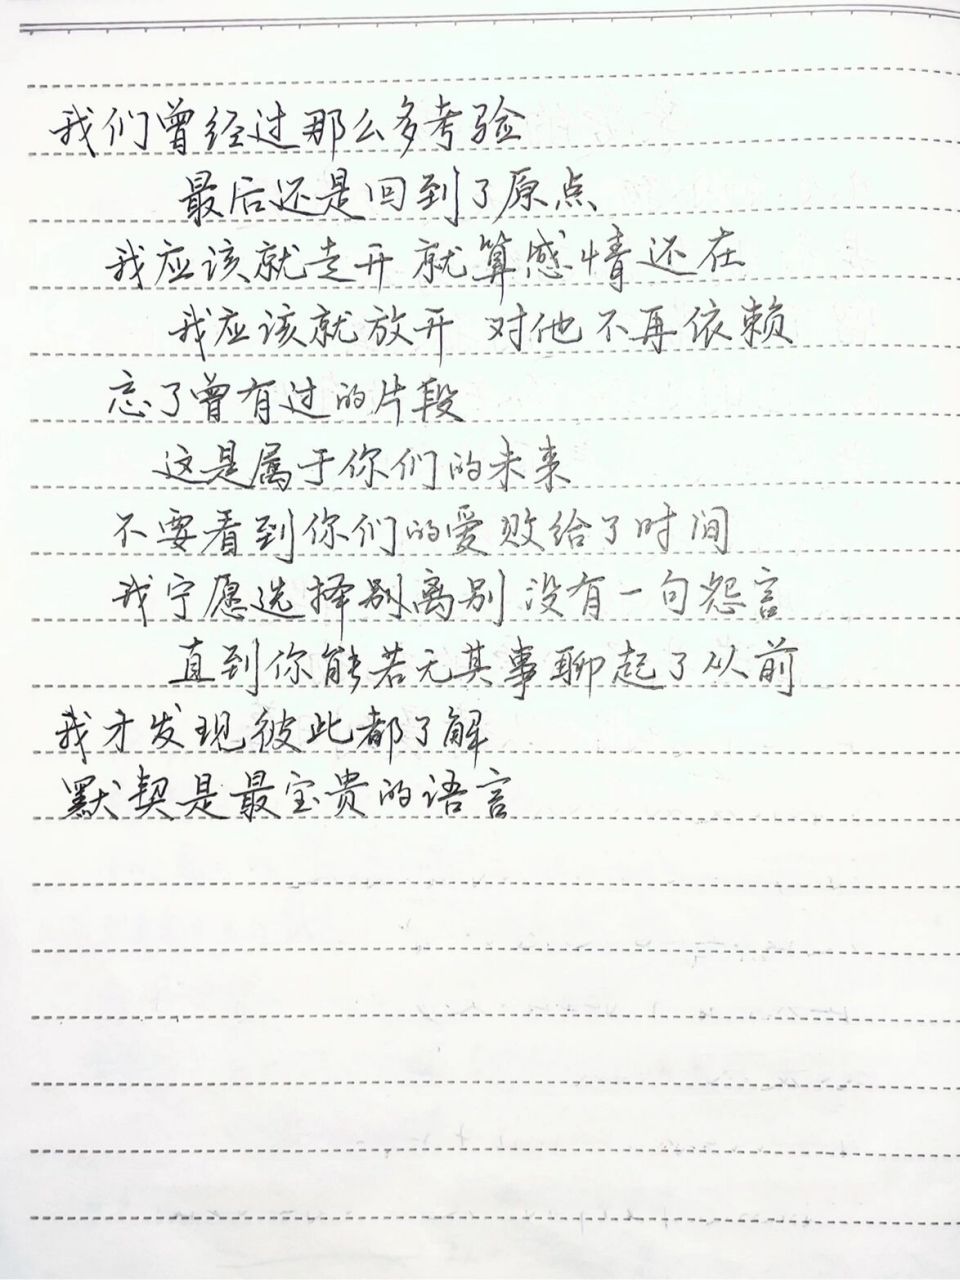 我们曾经过那么多考验
最后还是回到了原点
我应该就走开 就算感情还在
我应该就放开 对他不再依赖
忘了曾有过的片段
这是属于你们的未来
不要看到你们的爱败给了时间
我宁愿选择别离别 没有一句怨言
直到你能若无其事聊起了从前
我才发现彼此都了解
默契是最宝贵的语言